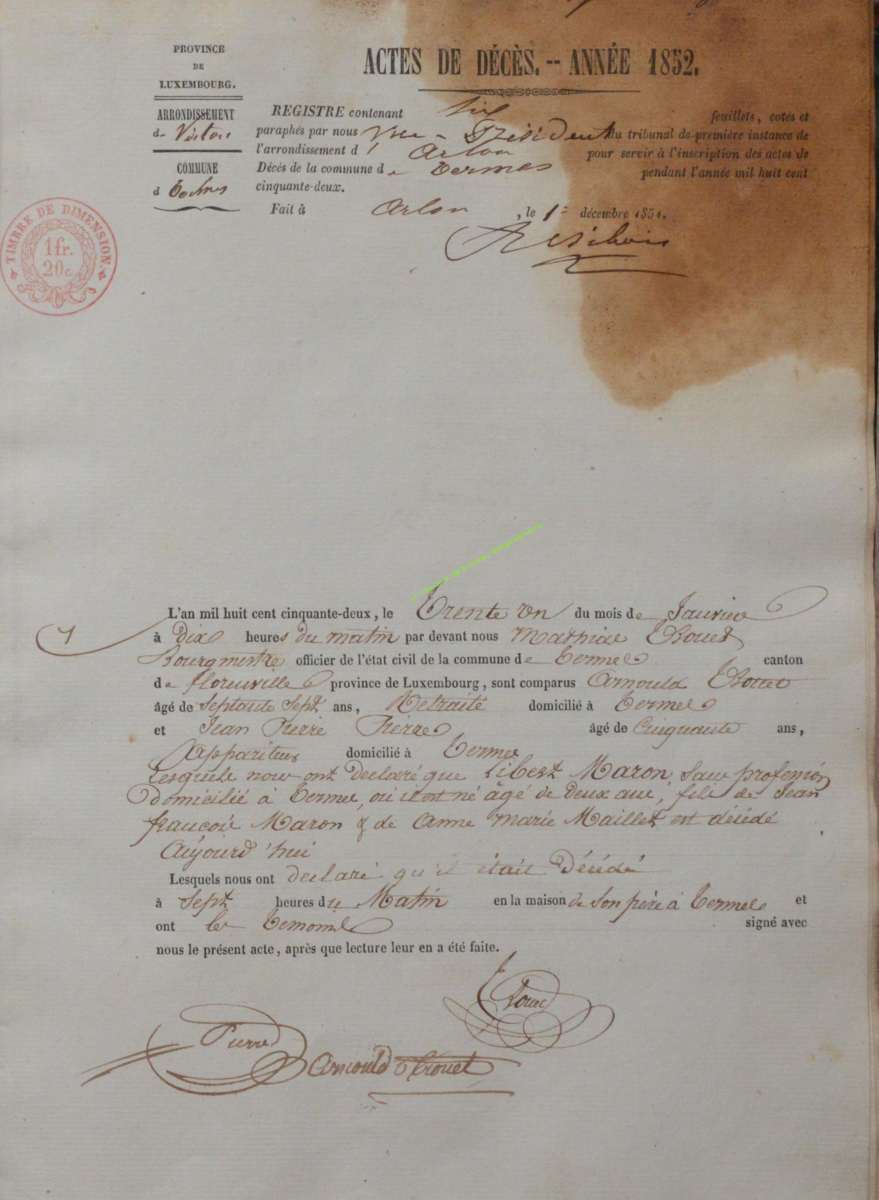 PROVINCE
DE
LUXEMBOURG.
ARRONDISSEMENT
de Virton
COMMUNE
d
TIMBRE DE DIMENSION.
1 fr.
20 c.
ACTES DE DÉCÈS. -- ANNÉE 1852.
REGISTRE contenant six feuillets, cotés et
paraphés par nous Vice-Président du tribunal de première instance de
l'arrondissement d'Arlon pour servir à l'inscription des actes de
Décès de la commune de Termes pendant l'année mil huit cent
cinquante-deux.
Fait à Arlon, le 1er décembre 1851.
1
L'an mil huit cent cinquante-deux, le Trente un du mois de Janvier
à Dix heures du matin par devant nous Mathieu
Bourgmestre officier de l'état civil de la commune de Termes canton
de florenville province de Luxembourg, sont comparus Arnould Trouet
âgé de Septante Sept ans, Retraité domicilié à Termes
et Jean Pierre Pierre âgé de Cinquante ans,
Appariteur domicilié à Termes
Lesquels nous ont déclaré que Libert Maron, Sans profession
domicilié à Termes, où il est né âgé de deux ans, fils de Jean
françois Maron & de Anne Marie Maillet est décédé
Aujourd'hui
Lesquels nous ont déclaré qu'il était Décédé
à Sept heures du Matin en la maison de Son père à Termes et
ont les Temoins signé avec
nous le présent acte, après que lecture leur en a été faite.
Trouet
Pierre
Arnould Trouet